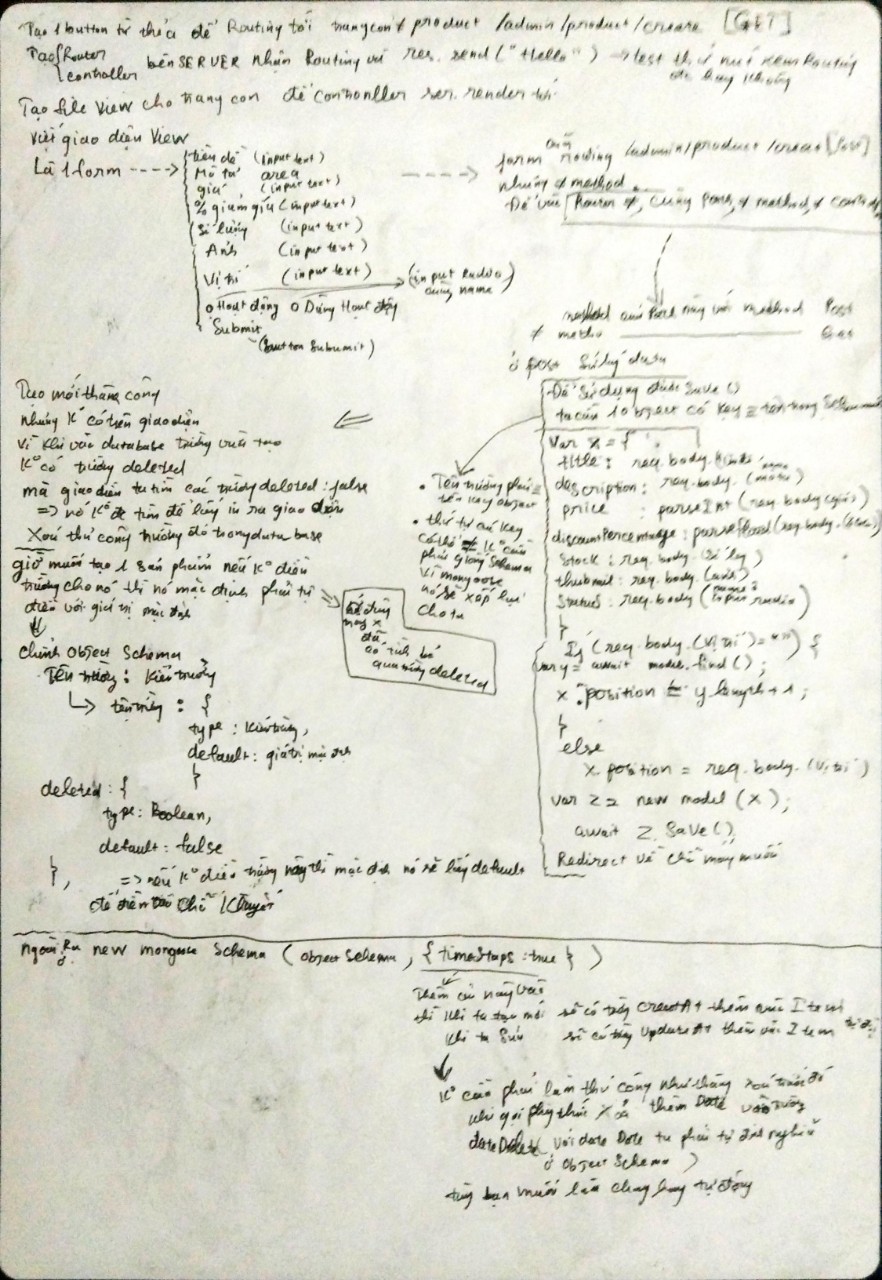 Tạo 1 button từ thẻ a để Routing tới trang con ≠ product /admin/product/create [GET]
Tạo { Router
controller
bên SERVER nhận Routing và res.send("Hello") → test thử nút xem Routing
được hay không
Tạo file View cho trang con để Controller res.render tới
Viết giao diện View
Là 1 form ---->
tiêu đề (input text)
Mô tả area
giá (input text)
% giảm giá (input text)
Số lượng (input text)
Ảnh (input text)
Vị trí (input text)
(input Radio)
cùng name
o Hoạt động o Dừng Hoạt động
Submit
(button Submit)
form routing /admin/product/create [Post]
nhưng ≠ method
Router ≠, cùng Path, ≠ method, ≠
method với method Post
≠ Get
ở post Xử lý data
Để sử dụng được Save()
ta cần 1 object có key = tên trong Schema
var x = {
title: req.body.
description: req.body.(mô tả)
price : parseInt(req.body.(giá))
discountPercentage: parseFloat(req.body.
Stock: req.body.
thumbnail: req.body.(ảnh)
Status: req.body (name radio)
}
If (req.body.(Vị trí) = "") {
var y = await model.find();
x.position = y.length + 1;
}
else
x.position = req.body.(Vị trí)
var z = new model (x);
await z.Save()
Redirect về chỗ mong muốn
• Tên trường phải =
tên key object
• thứ tự các key
có thể K° cần
phải giống Schema
vì mongoose
nó sẽ xếp lại
cho ta
Tạo mới thành công
nhưng K° có trên giao diện
Vì khi vào database trường vừa tạo
K° có trường deleted
mà giao diện ta tìm các trường deleted: false
=> nó K° để tìm để lấy in ra giao diện
Xoá thủ công trường đó trong database
giờ muốn tạo 1 sản phẩm nếu K° điền
trường cho nó thì nó mặc định phải tự
điền với giá trị mặc định
x
đã
cố tình bỏ
qua trường deleted
chỉnh Object Schema
Tên trường : kiểu trường
tên trường : {
type : kiểu trường,
default : giá trị mặc định
}
deleted : {
type: Boolean,
default : false
}, => nếu K° điền trường này thì mặc định nó sẽ lấy default
để điền vào chỗ khuyết
Ngoài Ra
ở new mongoose Schema (object Schema, { timeStaps: true })
Thêm cái này vào
thì khi ta tạo mới sẽ có trường createAt thêm vào Item
khi ta sửa sẽ có trường updateAt thêm vào Item
K° cần phải làm thủ công như thằng xoá trước đó
khi gọi phương thức xoá thêm Date vào trường
dateDelete( với date Date ta phải tự định nghĩa
ở object Schema )
tùy bạn muốn làm chay hay tự động